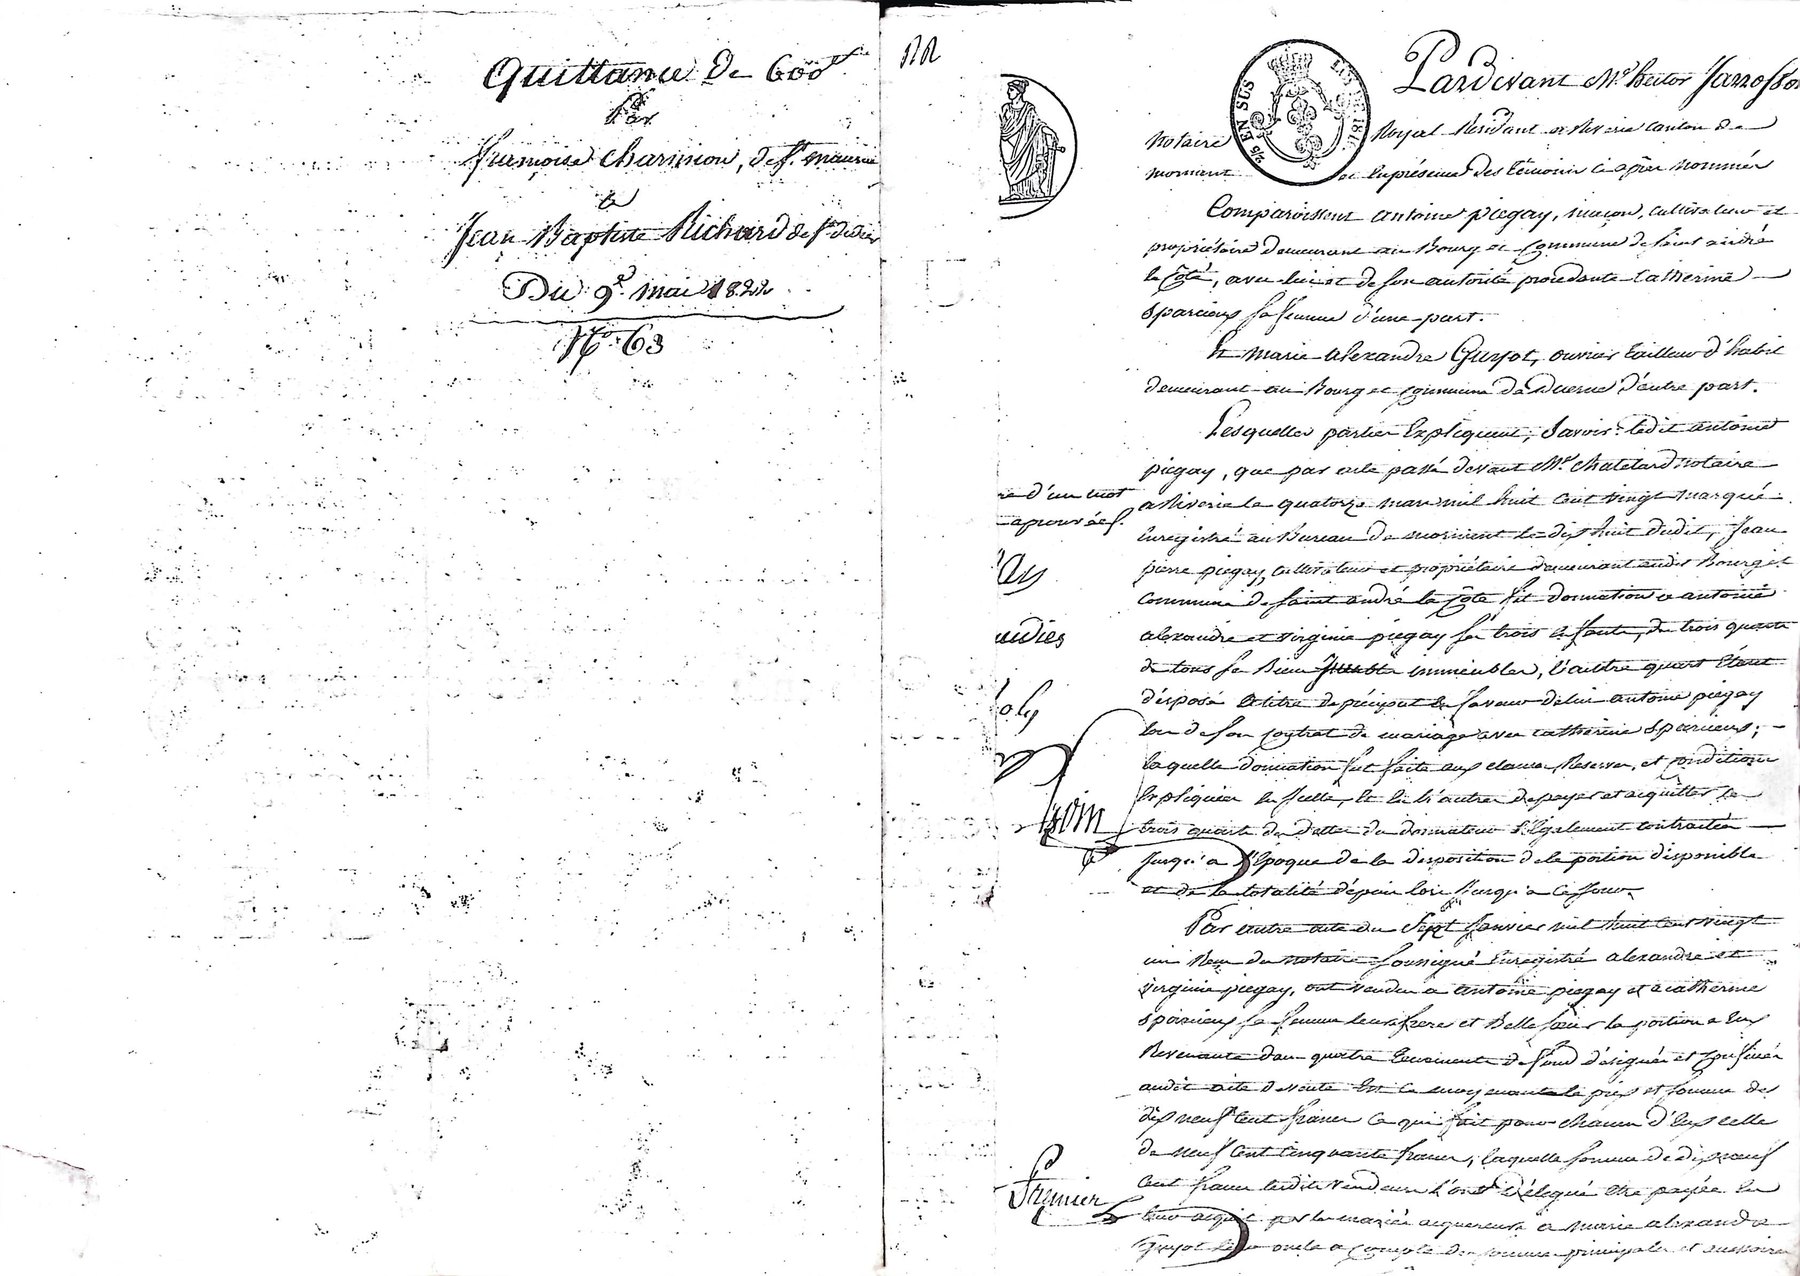 Quittance de 600f
Par
françoise charmion, de St maurice
a
Jean Baptiste Richard de St didier
Du 9e mai 1822
No. 63
EN SUS
Pardevant Me hector Jarrosson
notaire Royal Résidant a Riverie canton de
mornant et en présence des témoins ci après nommés
Comparoissent antoine piegay, maçon, cultivateur et
propriétaire demeurant au Bourg et Commune de saint andré
la Côte, avec lui et de son autorité procedante Catherine
Sparcieux sa femme d'une part.
Et marie alexandre Guyot, ouvrier tailleur d'habit
demeurant au Bourg et Commune de duerne d'autre part.
Lesquelles parties Expliquent, Savoir: ledit antoine
piegay, que par acte passé devant Me Chatelard notaire
a Riverie le quatorze mars mil huit cent vingt marqué
Enregistré au Bureau de mornant le dix huit dudit, Jean
pierre piegay, cultivateur et propriétaire demeurant audit Bourg et
Commune de saint andré la Côte fit donnation a antoine
alexandre et virginie piegay ses trois Enfants, du trois quarts
de tous ses Biens immeubles, l'autre quart Etant
disposé a titre de préciput En faveur de lui antoine piegay
lors de son Contrat de mariage avec catherine Sparcieux;
laquelle donnation fut faite aux clauses Reserves, et Conditions
Expliquées En Icelle, Et En outre de payer et acquitter les
trois quarts des dettes du donnateur Légalement contractées
Jusqu'a l'Epoque de la disposition de la portion disponible
et de la totalité dépuis lors Jusqu'a ce Jour.
Par autre acte du Sept Janvier mil huit cent vingt
un Reçu du notaire soussigné Enregistré alexandre et
virginie piegay, ont vendu a antoine piegay et a catherine
Sparcieux sa femme leurs frere et Belle sœur la portion a Eux
Revenante dans quatre tenements de fond désignés et confinés
audit acte de vente Et ce moyennant le prix et somme de
dix neuf Cent francs ce qui fait pour chacun d'Eux celle
de neuf Cent Cinquante francs, laquelle somme de dix neuf
Cent francs lesdits vendeurs l'ont délégué Etre payée En
leur acquit par les mariés acquereurs a marie alexandre
Guyot leur oncle a Compte des sommes principales et accessoires
re d'un mot
approuvées.
Premier